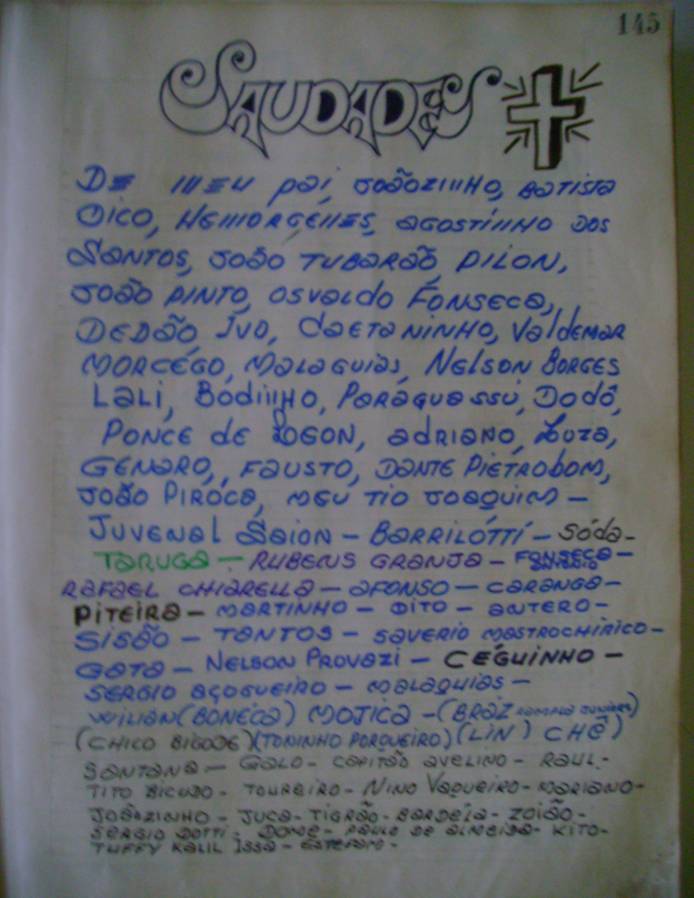 145
SAUDADES
DE MEU PAI, JOÃOZINHO, BATISTA
OICO, HEMORGENES, AGOSTINHO DOS
SANTOS, JOÃO TUBARÃO, PILON,
JOÃO PINTO, OSVALDO FONSECA,
DEDÃO, IVO, CAETANINHO, VALDEMAR
MORCÊGO, MALAGUIAS, NELSON BORGES
LALI, BODINHO, PARAGUASSÚ, DODÔ,
PONCE DE LEON, ADRIANO, LUZA,
GENARO, FAUSTO, DANTE PIETROBOM,
JOÃO PIROCA, MEU TIO JOAQUIM -
JUVENAL SAION - BARRILOTTI - SODA -
TARUGA - RUBENS GRANJA - FONSECA -
RAFAEL CHIARELLA - AFONSO - CARANGA -
PITEIRA - MARTINHO - DITO - ANTERO -
SISÃO - TANTOS - SAVERIO MASTROCHIRICO -
GATA - NELSON PROVAZI - CÉGUINHO -
SERGIO AÇOGUEIRO - MALAQUIAS -
WILIAN (BONECA) MOJICA - (BRAZ JUNIOR)
(CHICO BIGODE) (TONINHO PORQUEIRO) (LIN) CHÊ)
SANTANA - GALO - CAPITÃO AVELINO - RAUL -
TITO BICUDO - TOUREIRO - NINO VAQUEIRO - MARIANO -
JOÃOZINHO - JUCA - TIGRÃO - BARDELA - ZOIÃO -
SERGIO DOTTI - - PAULO DE ALMEIDA - KITO -
TUFFY KALIL ISSA - ESTEFAM -